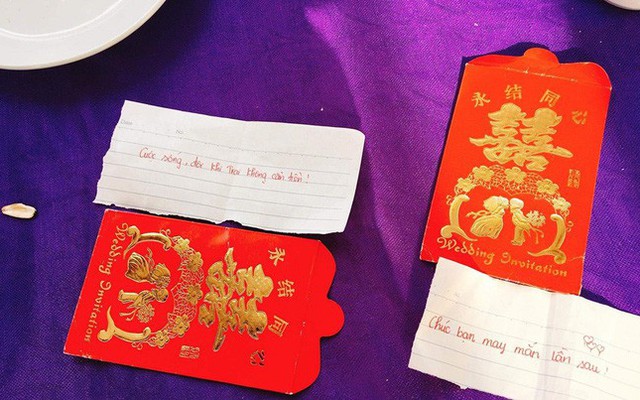 Cuộc sống, đôi khi không cần
永结同心
囍
Wedding Invitation
永结同心
囍
Wedding Invitation
Chúc bạn may mắn lần sau !